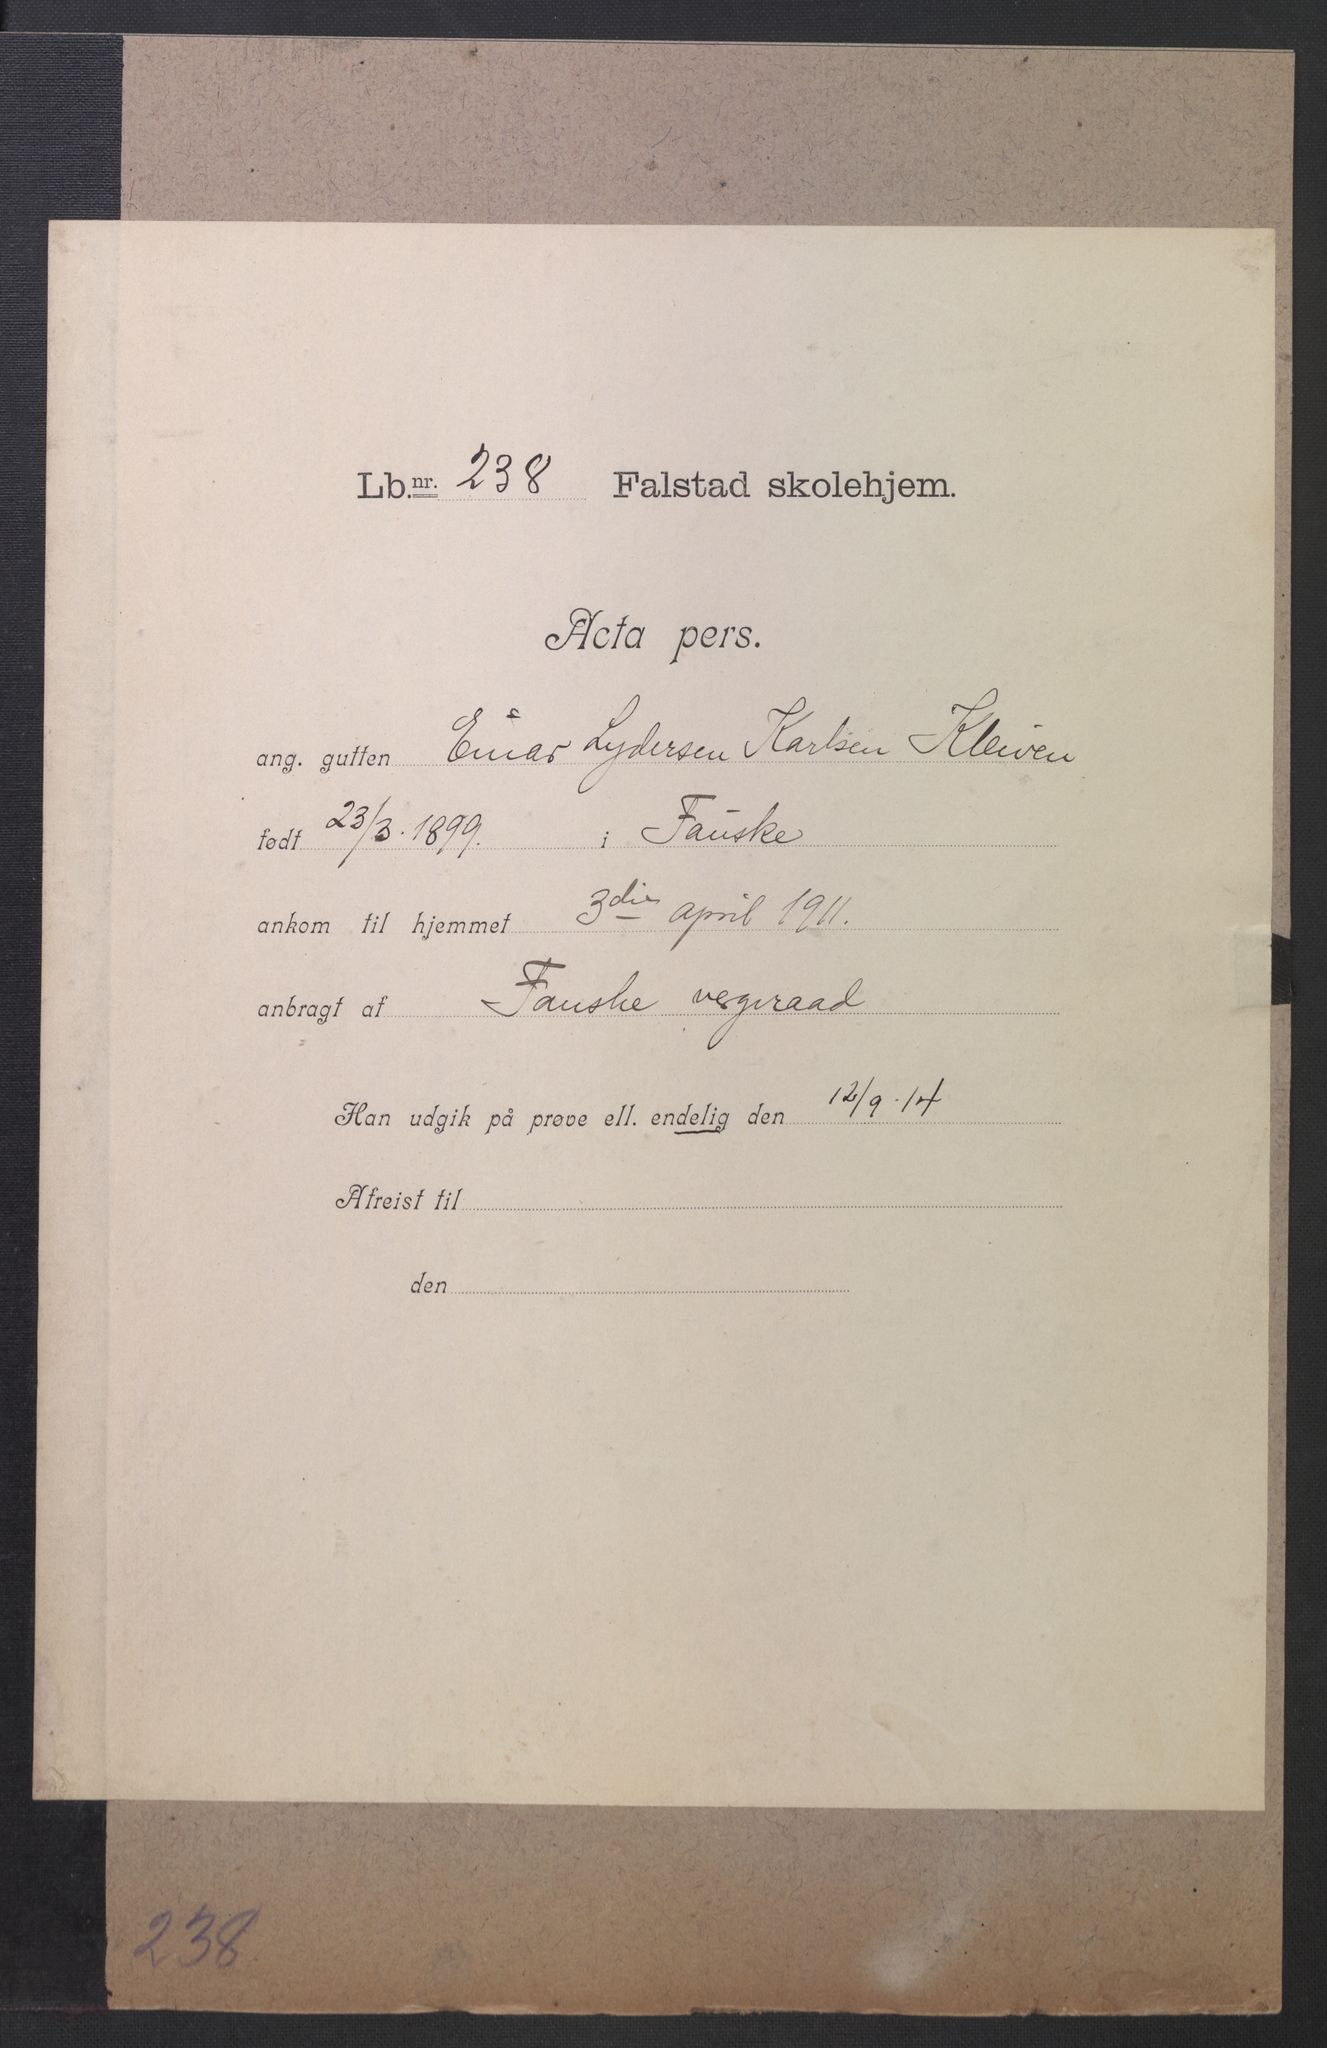 Lb.nr. 238 Falstad skolehjem.
Acta pers.
ang. gutten Einar Lydersen Karlsen Kleiven
født 23/3. 1899. i Fauske
ankom til hjemmet 3die april 1911.
anbragt af Fauske vergeraad
Han udgik på prøve ell. endelig den 12/9.14
Afreist til
den
238